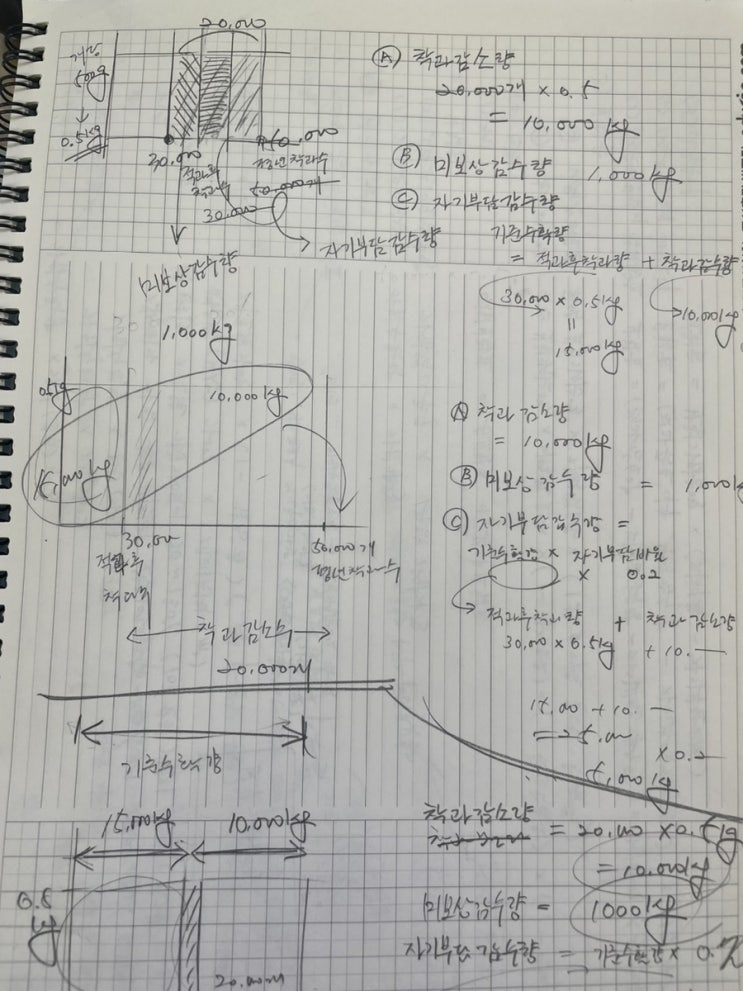 20,000
개당
500g
↓
0.5kg
30,000
적과후
착과수
평년착과수
50,000개
30,000
미보상감수량
자기부담감수량
Ⓐ 착과감소량
20,000개 × 0.5
= 10,000 kg
Ⓑ 미보상감수량 1,000kg
Ⓒ 자기부담감수량
기준수확량
= 적과후착과량 + 착과감소량
30,000 × 0.5kg
"
15,000kg
10,000kg
1,000kg
0.5kg
10,000kg
15,000kg
30,000
적과후
착과수
50,000개
평년착과수
착과감소수
20,000개
Ⓐ 착과감소량
= 10,000kg
Ⓑ 미보상감수량 = 1,000kg
Ⓒ 자기부담감수량 =
기준수확량 × 자기부담비율
× 0.2
적과후착과량 + 착과감소량
30,000 × 0.5kg + 10.—
15,000 + 10.—
= 25,000
× 0.2
5,000kg
기준수확량
15,000kg 10,000kg
0.5
kg
20,000개
착과감소량
= 20,000 × 0.5kg
= 10,000kg
미보상감수량 = 1000kg
자기부담감수량 = 기준수확량 × 0.2